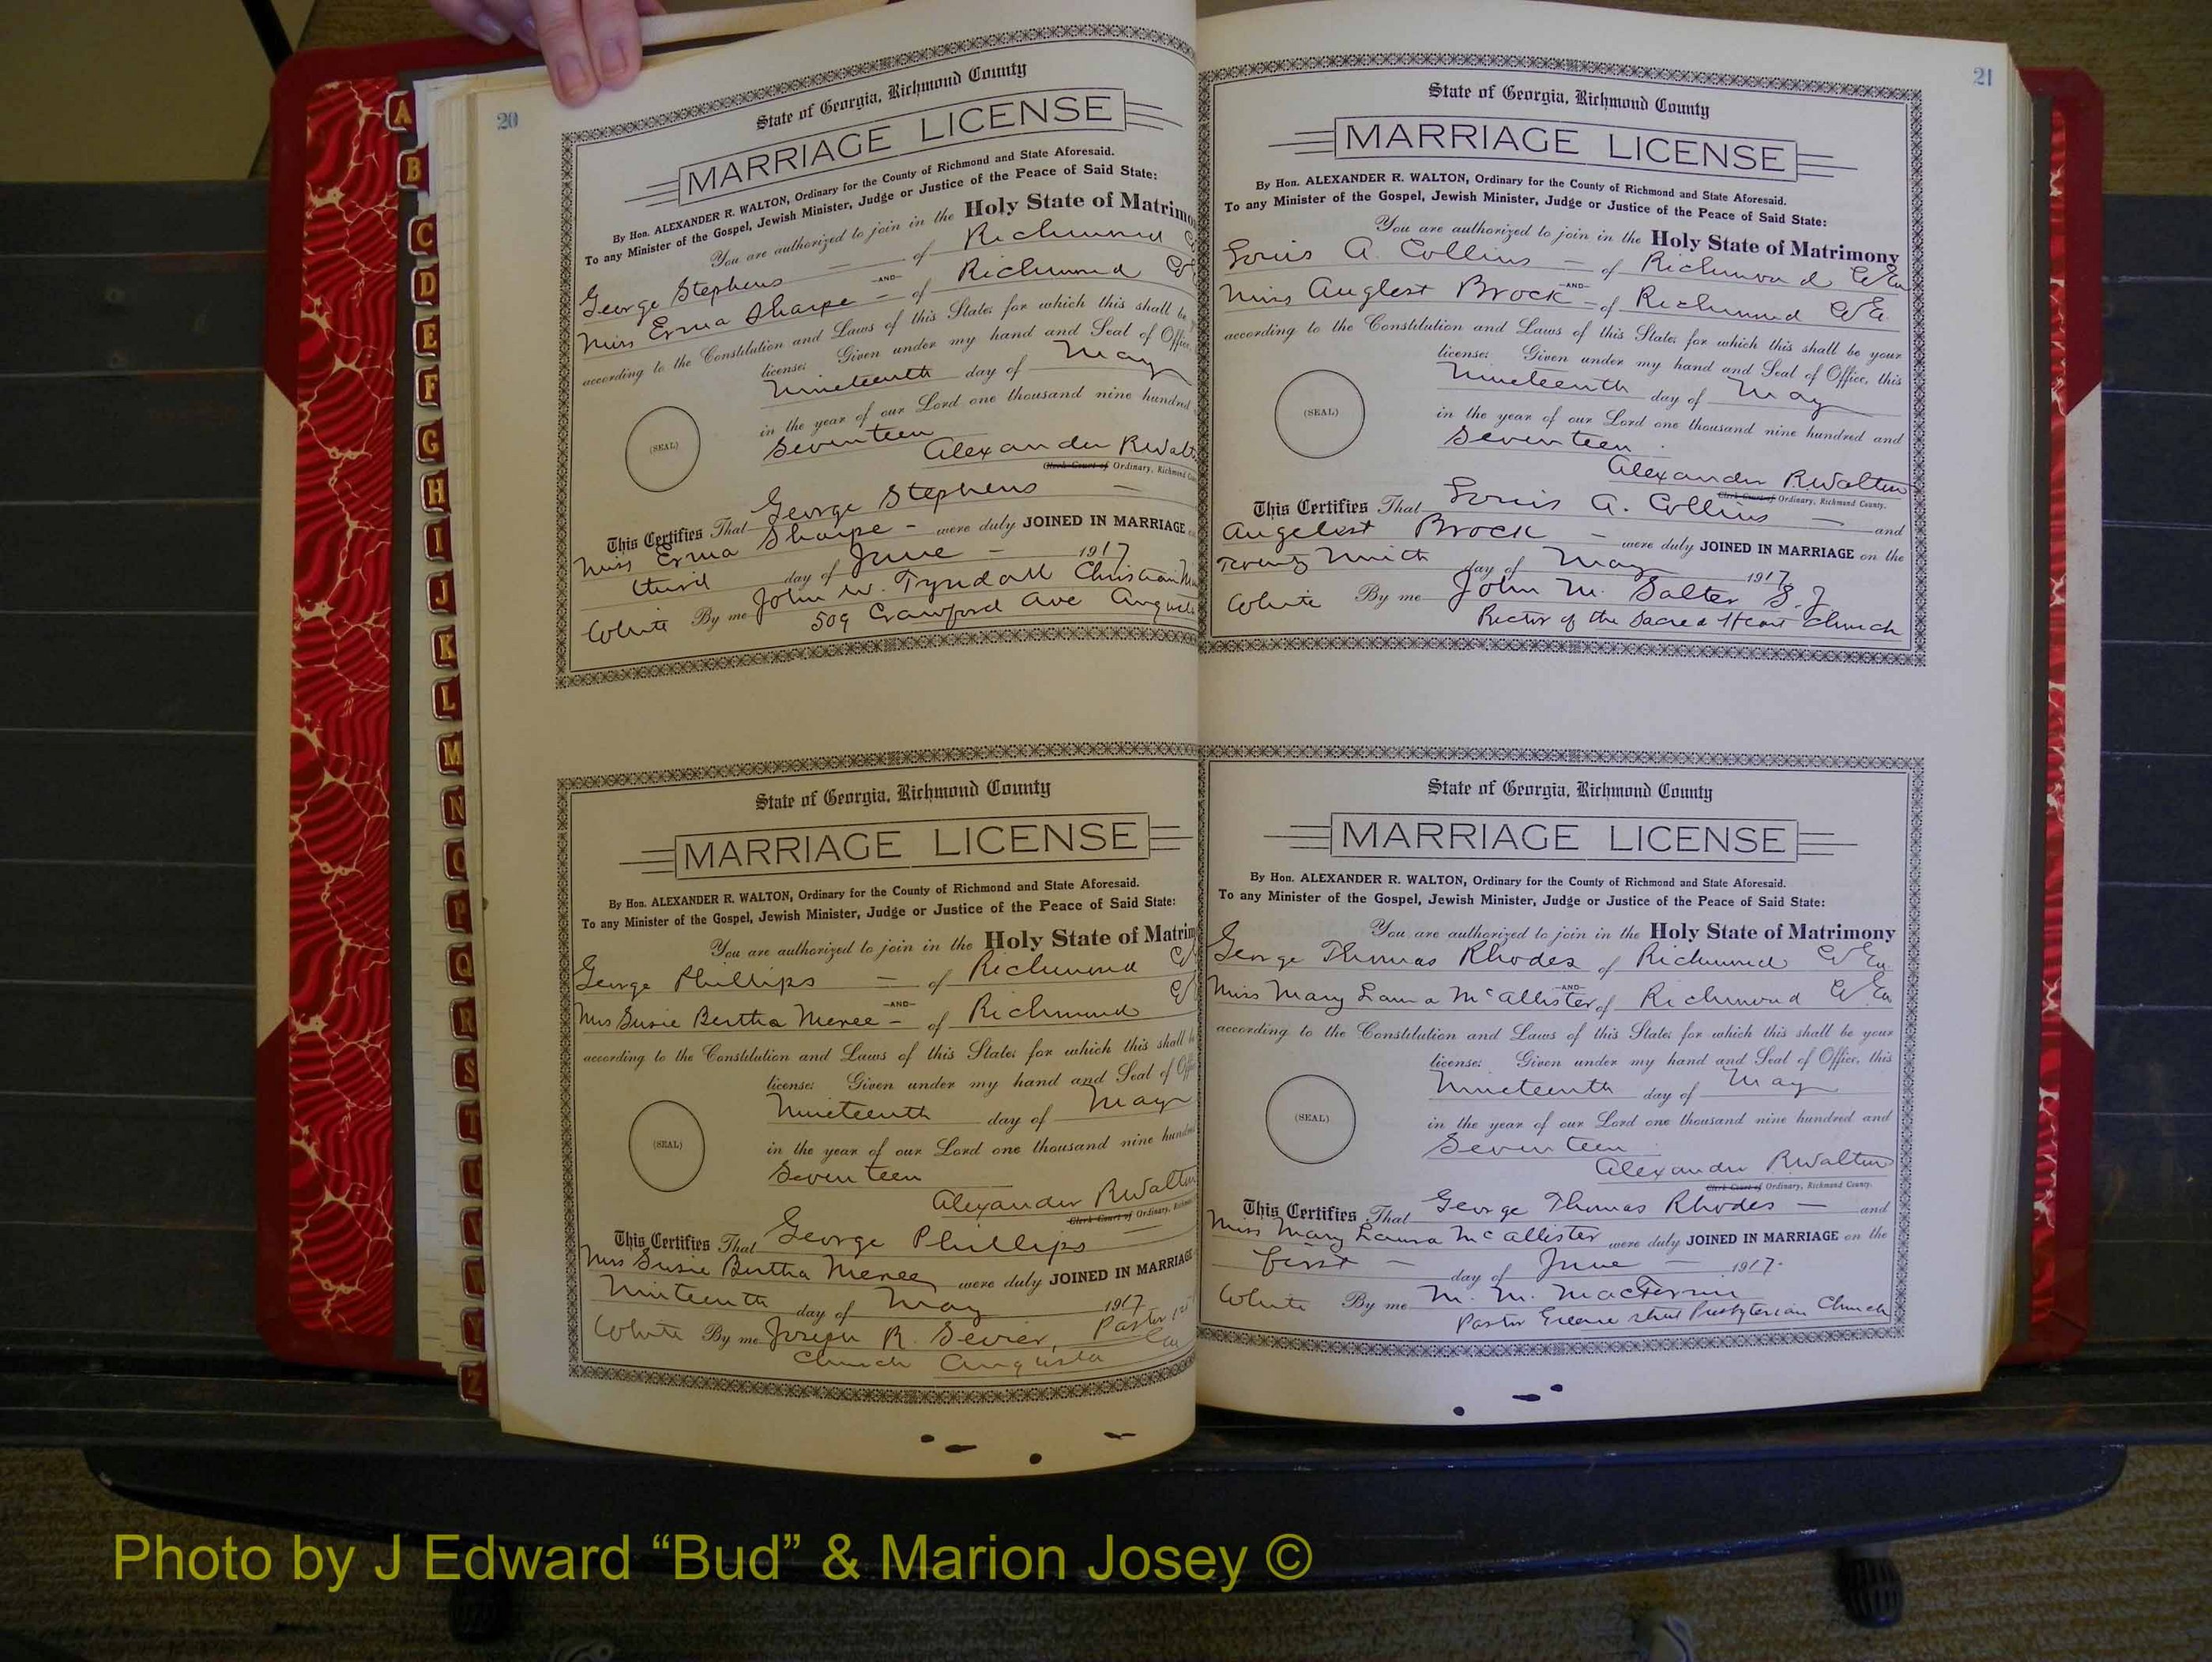 20
State of Georgia, Richmond County
MARRIAGE LICENSE
By Hon. ALEXANDER R. WALTON, Ordinary for the County of Richmond and State Aforesaid.
To any Minister of the Gospel, Jewish Minister, Judge or Justice of the Peace of Said State:
You are authorized to join in the Holy State of Matrimo
George Stephens — of Richmond
-AND-
Miss Erma Sharpe - of Richmond Co
according to the Constitution and Laws of this State; for which this shall be
license: Given under my hand and Seal of Office,
Nineteenth day of May
(SEAL)
in the year of our Lord one thousand nine hundred
Seventeen
Alexander R Walt
Clerk Court of Ordinary, Richmond
This Certifies That George Stephens —
Miss Erma Sharpe - were duly JOINED IN MARRIAGE
third day of June - 1917
White By me John W. Tyndall Christian
509 Crawford Ave Augusta
State of Georgia, Richmond County
MARRIAGE LICENSE
By Hon. ALEXANDER R. WALTON, Ordinary for the County of Richmond and State Aforesaid.
To any Minister of the Gospel, Jewish Minister, Judge or Justice of the Peace of Said State:
You are authorized to join in the Holy State of Matrim
George Phillips = of Richmond Co
-AND-
Mrs Susie Bertha - of Richmond
according to the Constitution and Laws of this State; for which this shall
license: Given under my hand and Seal of Off
Nineteenth day of May
(SEAL)
in the year of our Lord one thousand nine hundred
Seventeen
Alexander R Walton
Clerk Court of Ordinary,
This Certifies That George Phillips
Mrs Susie Bertha were duly JOINED IN MARRIAGE
Ninteenth day of May 1917
White By me Joseph R. Sevier, Pastor 1st
Church Augusta Ga
21
State of Georgia, Richmond County
MARRIAGE LICENSE
By Hon. ALEXANDER R. WALTON, Ordinary for the County of Richmond and State Aforesaid.
To any Minister of the Gospel, Jewish Minister, Judge or Justice of the Peace of Said State:
You are authorized to join in the Holy State of Matrimony
Louis A. Collins - of Richmond Co Ga
-AND-
Miss Auglest Brock - of Richmond Co Ga
according to the Constitution and Laws of this State; for which this shall be your
license: Given under my hand and Seal of Office, this
Nineteenth day of May
(SEAL)
in the year of our Lord one thousand nine hundred and
Seventeen
Alexander R. Walton
Clerk Court of Ordinary, Richmond County.
This Certifies That Louis A. Collins — and
Angelest Brock - were duly JOINED IN MARRIAGE on the
Twenty Ninth day of May 1917
White By me John M. Salter S. J.
Rector of the Sacred Heart Church
State of Georgia, Richmond County
MARRIAGE LICENSE
By Hon. ALEXANDER R. WALTON, Ordinary for the County of Richmond and State Aforesaid.
To any Minister of the Gospel, Jewish Minister, Judge or Justice of the Peace of Said State:
You are authorized to join in the Holy State of Matrimony
George Thomas Rhodes of Richmond Co Ga
-AND-
Miss Mary Laura McAllister of Richmond Co Ga
according to the Constitution and Laws of this State; for which this shall be your
license: Given under my hand and Seal of Office, this
Nineteenth day of May
(SEAL)
in the year of our Lord one thousand nine hundred and
Seventeen
Alexander R Walton
Clerk Court of Ordinary, Richmond County.
This Certifies That George Thomas Rhodes — and
Miss Mary Laura McAllister were duly JOINED IN MARRIAGE on the
first - day of June — 1917.
White By me M. M.
Pastor Greene street Presbyterian Church
A
B
C
D
E
F
G
H
I
J
K
L
M
N
O
P
Q
R
S
T
U
V
W
Y
Z
Photo by J Edward “Bud” & Marion Josey ©